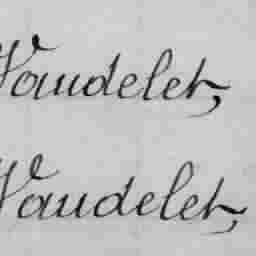 Vaudelet,
Vaudelet,